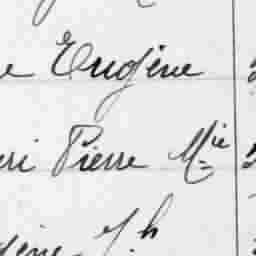 e Eugène
eri Pierre Mie
gène J.h